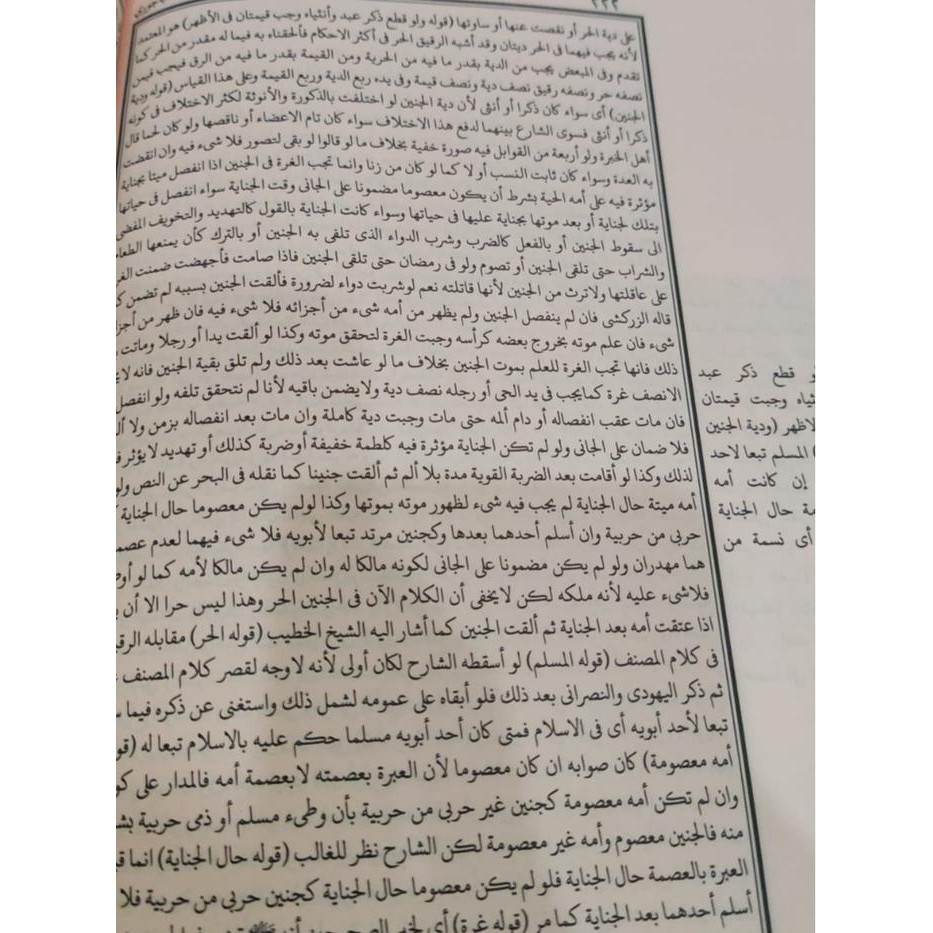 ٢٢٢
على دية الحر أو نقصت عنها أو ساوتها (قوله ولو قطع ذكر عبد وأنثياه وجب قيمتان فى الأظهر) هو المعتمد
لأنه يجب فيهما فى الحر ديتان وقد أشبه الرقيق الحر فى أكثر الاحكام فألحقناه به فيما له مقدر من الحر كما
تقدم وفى المبعض يجب من الدية بقدر ما فيه من الحرية ومن القيمة بقدر ما فيه من الرق فيجب فيمن
نصفه حر ونصفه رقيق نصف دية ونصف قيمة وفى يده ربع الدية وربع القيمة وعلى هذا القياس (قوله ودية
الجنين) أى سواء كان ذكرا أو أنثى لأن دية الجنين لو اختلفت بالذكورة والأنوثة لكثر الاختلاف فى كونه
ذكرا أو أنثى فسوى الشارع بينهما لدفع هذا الاختلاف سواء كان تام الاعضاء أو ناقصها ولو كان لحما قال
أهل الخبرة ولو أربعة من القوابل فيه صورة خفية بخلاف ما لو قالوا لو بقى لتصور فلا شىء فيه وان انقضت
به العدة وسواء كان ثابت النسب أو لا كما لو كان من زنا وانما تجب الغرة فى الجنين اذا انفصل ميتا بجناية
مؤثرة فيه على أمه الحية بشرط أن يكون معصوما مضمونا على الجانى وقت الجناية سواء انفصل فى حياتها
بتلك لجناية أو بعد موتها بجناية عليها فى حياتها وسواء كانت الجناية بالقول كالتهديد والتخويف المفضى
الى سقوط الجنين أو بالفعل كالضرب وشرب الدواء الذى تلقى به الجنين أو بالترك كأن يمنعها الطعام
والشراب حتى تلقى الجنين أو تصوم ولو فى رمضان حتى تلقى الجنين فاذا صامت فأجهضت ضمنت
على عاقلتها ولاترث من الجنين لأنها قاتلته نعم لوشربت دواء لضرورة فألقت الجنين بسببه لم تضمن
قاله الزركشى فان لم ينفصل الجنين ولم يظهر من أمه شىء من أجزائه فلا شىء فيه فان ظهر من
شىء فان علم موته بخروج بعضه كرأسه وجبت الغرة لتحقق موته وكذا لو ألقت يدا أو رجلا وماتت
ذلك فانها تجب الغرة للعلم بموت الجنين بخلاف ما لو عاشت بعد ذلك ولم تلق بقية الجنين فانه
الانصف غرة كمايجب فى يد الحى أو رجله نصف دية ولايضمن باقيه لأنا لم نتحقق تلفه ولو انفصل
فان مات عقب انفصاله أو دام ألمه حتى مات وجبت دية كاملة وان مات بعد انفصاله بزمن ولا
فلا ضمان على الجانى ولو لم تكن الجناية مؤثرة فيه كلطمة خفيفة أوضربة كذلك أو تهديد لا يؤثر
لذلك وكذا لو أقامت بعد الضربة القوية مدة بلا ألم ثم ألقت جنينا كما نقله فى البحر عن النص
أمه ميتة حال الجناية لم يجب فيه شىء لظهور موته بموتها وكذا لولم يكن معصوما حال الجناية
حربى من حربية وان أسلم أحدهما بعدها وكجنين مرتد تبعا لأبويه فلا شىء فيهما لعدم
هما مهدران ولو لم يكن مضمونا على الجانى لكونه مالكا له وان لم يكن مالكا لأمه كما لو
فلاشىء عليه لأنه ملكه لكن لايخفى أن الكلام الآن فى الجنين الحر وهذا ليس حرا الا أن
اذا عتقت أمه بعد الجناية ثم ألقت الجنين كما أشار اليه الشيخ الخطيب (قوله الحر) مقابله
فى كلام المصنف (قوله المسلم) لو أسقطه الشارح لكان أولى لأنه لاوجه لقصر كلام المصنف
ثم ذكر اليهودى والنصرانى بعد ذلك فلو أبقاه على عمومه لشمل ذلك واستغنى عن ذكره فيما
تبعا لأحد أبويه أى فى الاسلام فمتى كان أحد أبويه مسلما حكم عليه بالاسلام تبعا له
أمه معصومة) كان صوابه ان كان معصوما لأن العبرة بعصمته لابعصمة أمه فالمدار على
وان لم تكن أمه معصومة كجنين غير حربى من حربية بأن وطىء مسلم أو ذمى حربية
منه فالجنين معصوم وأمه غير معصومة لكن الشارح نظر للغالب (قوله حال الجناية) انما
العبرة بالعصمة حال الجناية فلو لم يكن معصوما حال الجناية كجنين حربى من حربية فلا
أسلم أحدهما بعد الجناية كما مر (قوله غرة) أى
قطع ذكر عبد
وجبت قيمتان
(ودية الجنين
المسلم تبعا لاحد
إن كانت أمه
حال الجناية
أى نسمة من